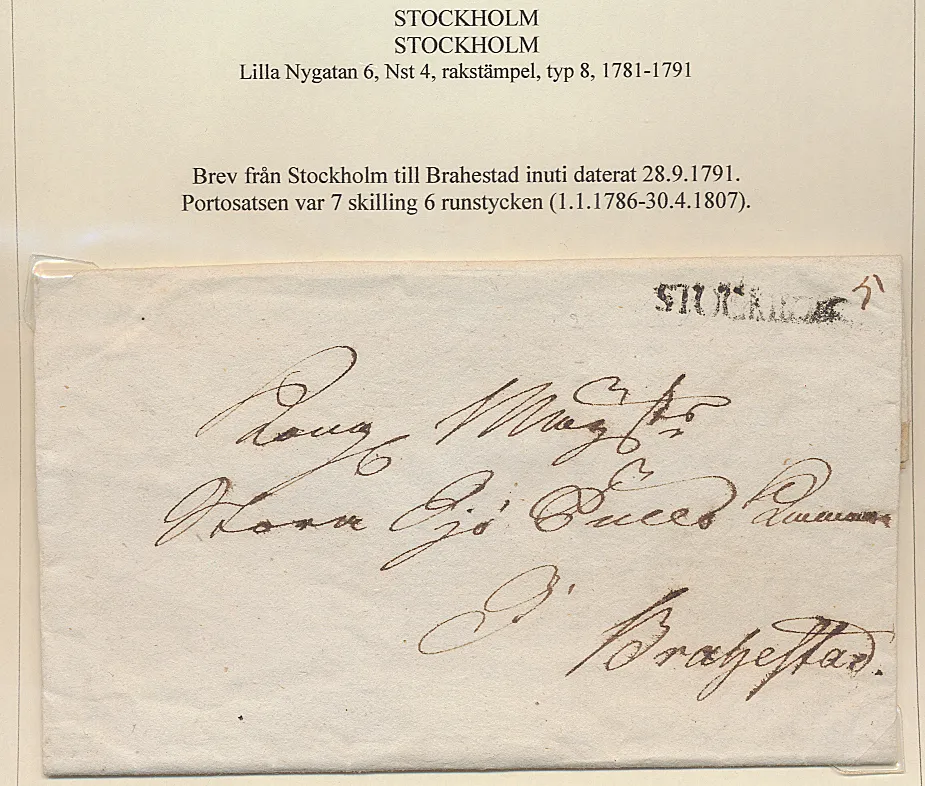 STOCKHOLM
STOCKHOLM
Lilla Nygatan 6, Nst 4, rakstämpel, typ 8, 1781-1791
Brev från Stockholm till Brahestad inuti daterat 28.9.1791.
Portosatsen var 7 skilling 6 runstycken (1.1.1786-30.4.1807).
STOCKHOLM
Kong Mag:ts
Stora Sjö Tulls
I Brahestad.